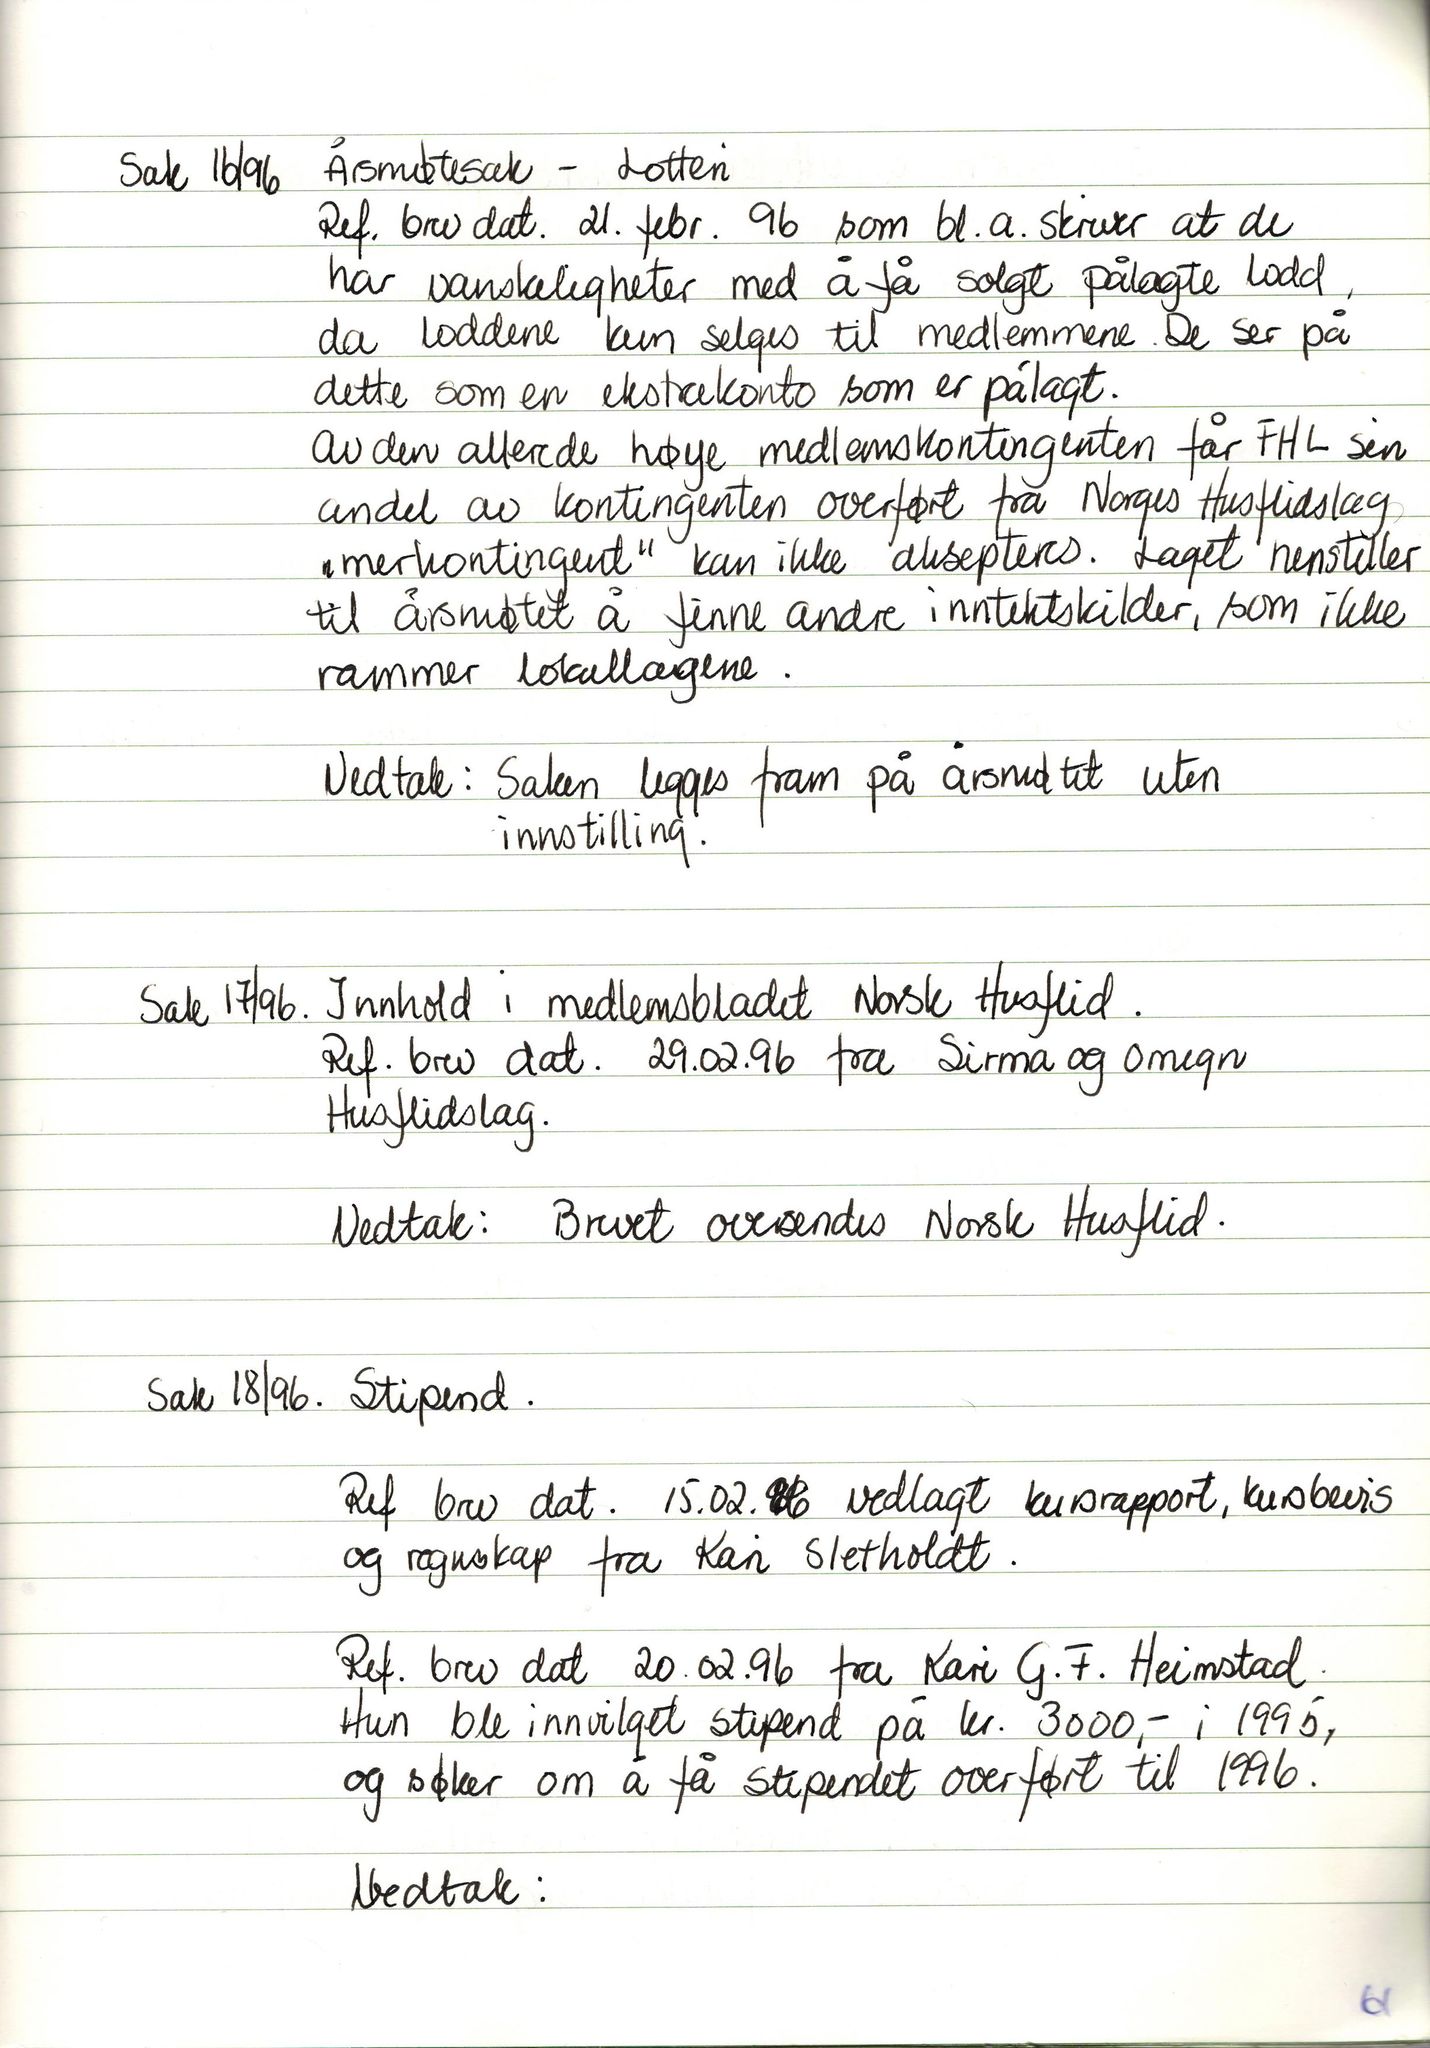 Sak 16/96 Årsmøtesak - Lotteri
Ref. brev dat. 21. febr. 96 som bl.a. skriver at de
har vanskeligheter med å få solgt pålagte lodd,
da loddene kun selges til medlemmene. De ser på
dette som en ekstrakonto som er pålagt.
Av den allerede høye medlemskontingenten får FHL sin
andel av kontingenten overført fra Norges Husflidslag
"merkontingent" kan ikke aksepteres. Laget henstiller
til årsmøtet å finne andre inntektskilder, som ikke
rammer lokallagene.
Vedtak: Saken legges fram på årsmøtet uten
innstilling.
Sak 17/96. Innhold i medlemsbladet Norsk Husflid.
Ref. brev dat. 29.02.96 fra Sirma og omegn
Husflidslag.
Vedtak: Brevet oversendes Norsk Husflid.
Sak 18/96. Stipend.
Ref brev dat. 15.02.96 vedlagt kursrapport, kursbevis
og regnskap fra Kari Sletholdt.
Ref. brev dat 20.02.96 fra Kari G.F. Heimstad.
Hun ble innvilget stipend på kr. 3000,- i 1995,
og søker om å få stipendet overført til 1996.
Vedtak:
61